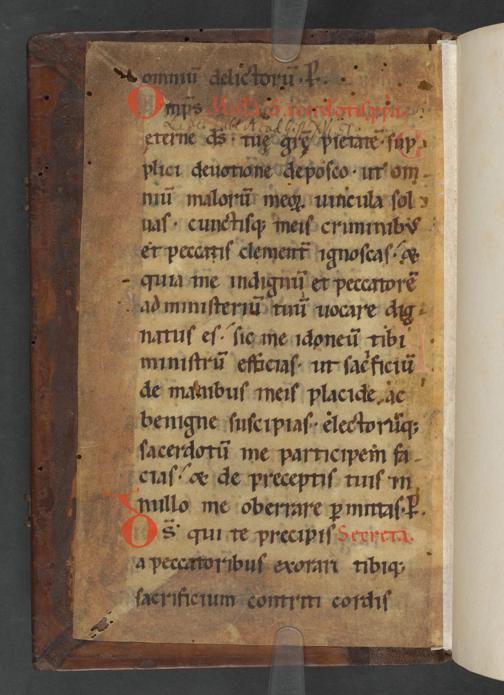 omniū delictorū · P̄.
Omp̄s Missa Sacerdotis ꝓpria
eterne ds̄ · tuę grę pietatē · sup
plici deuotione deposco · ut om
niū malorū meoꝝ uincula sol
uas · cunctisq; meis criminibꝰ
et peccatis clement̄ ignoscas · &
quia me indignū et peccatorē
ad ministeriū tuū uocare dig
natus es · sic me idoneū tibi
ministrū efficias · ut sacrficiū
de manibus meis placide ac
benigne suscipias · electorūq;
sacerdotū me participem fa
cias · & de preceptis tuis in
nullo me oberrare ꝑmittas · P̄.
Ds̄ · qui te precipis Secreta.
a peccatoribus exorari tibiq;
sacrificium contriti cordis